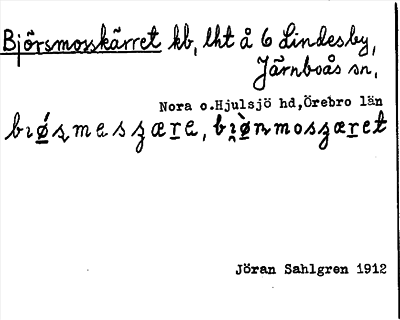 Björsmosskärret kb, lht å 6 Lindesby,
Järnboås sn,
Nora o.Hjulsjö hd,Örebro län
Jöran Sahlgren 1912